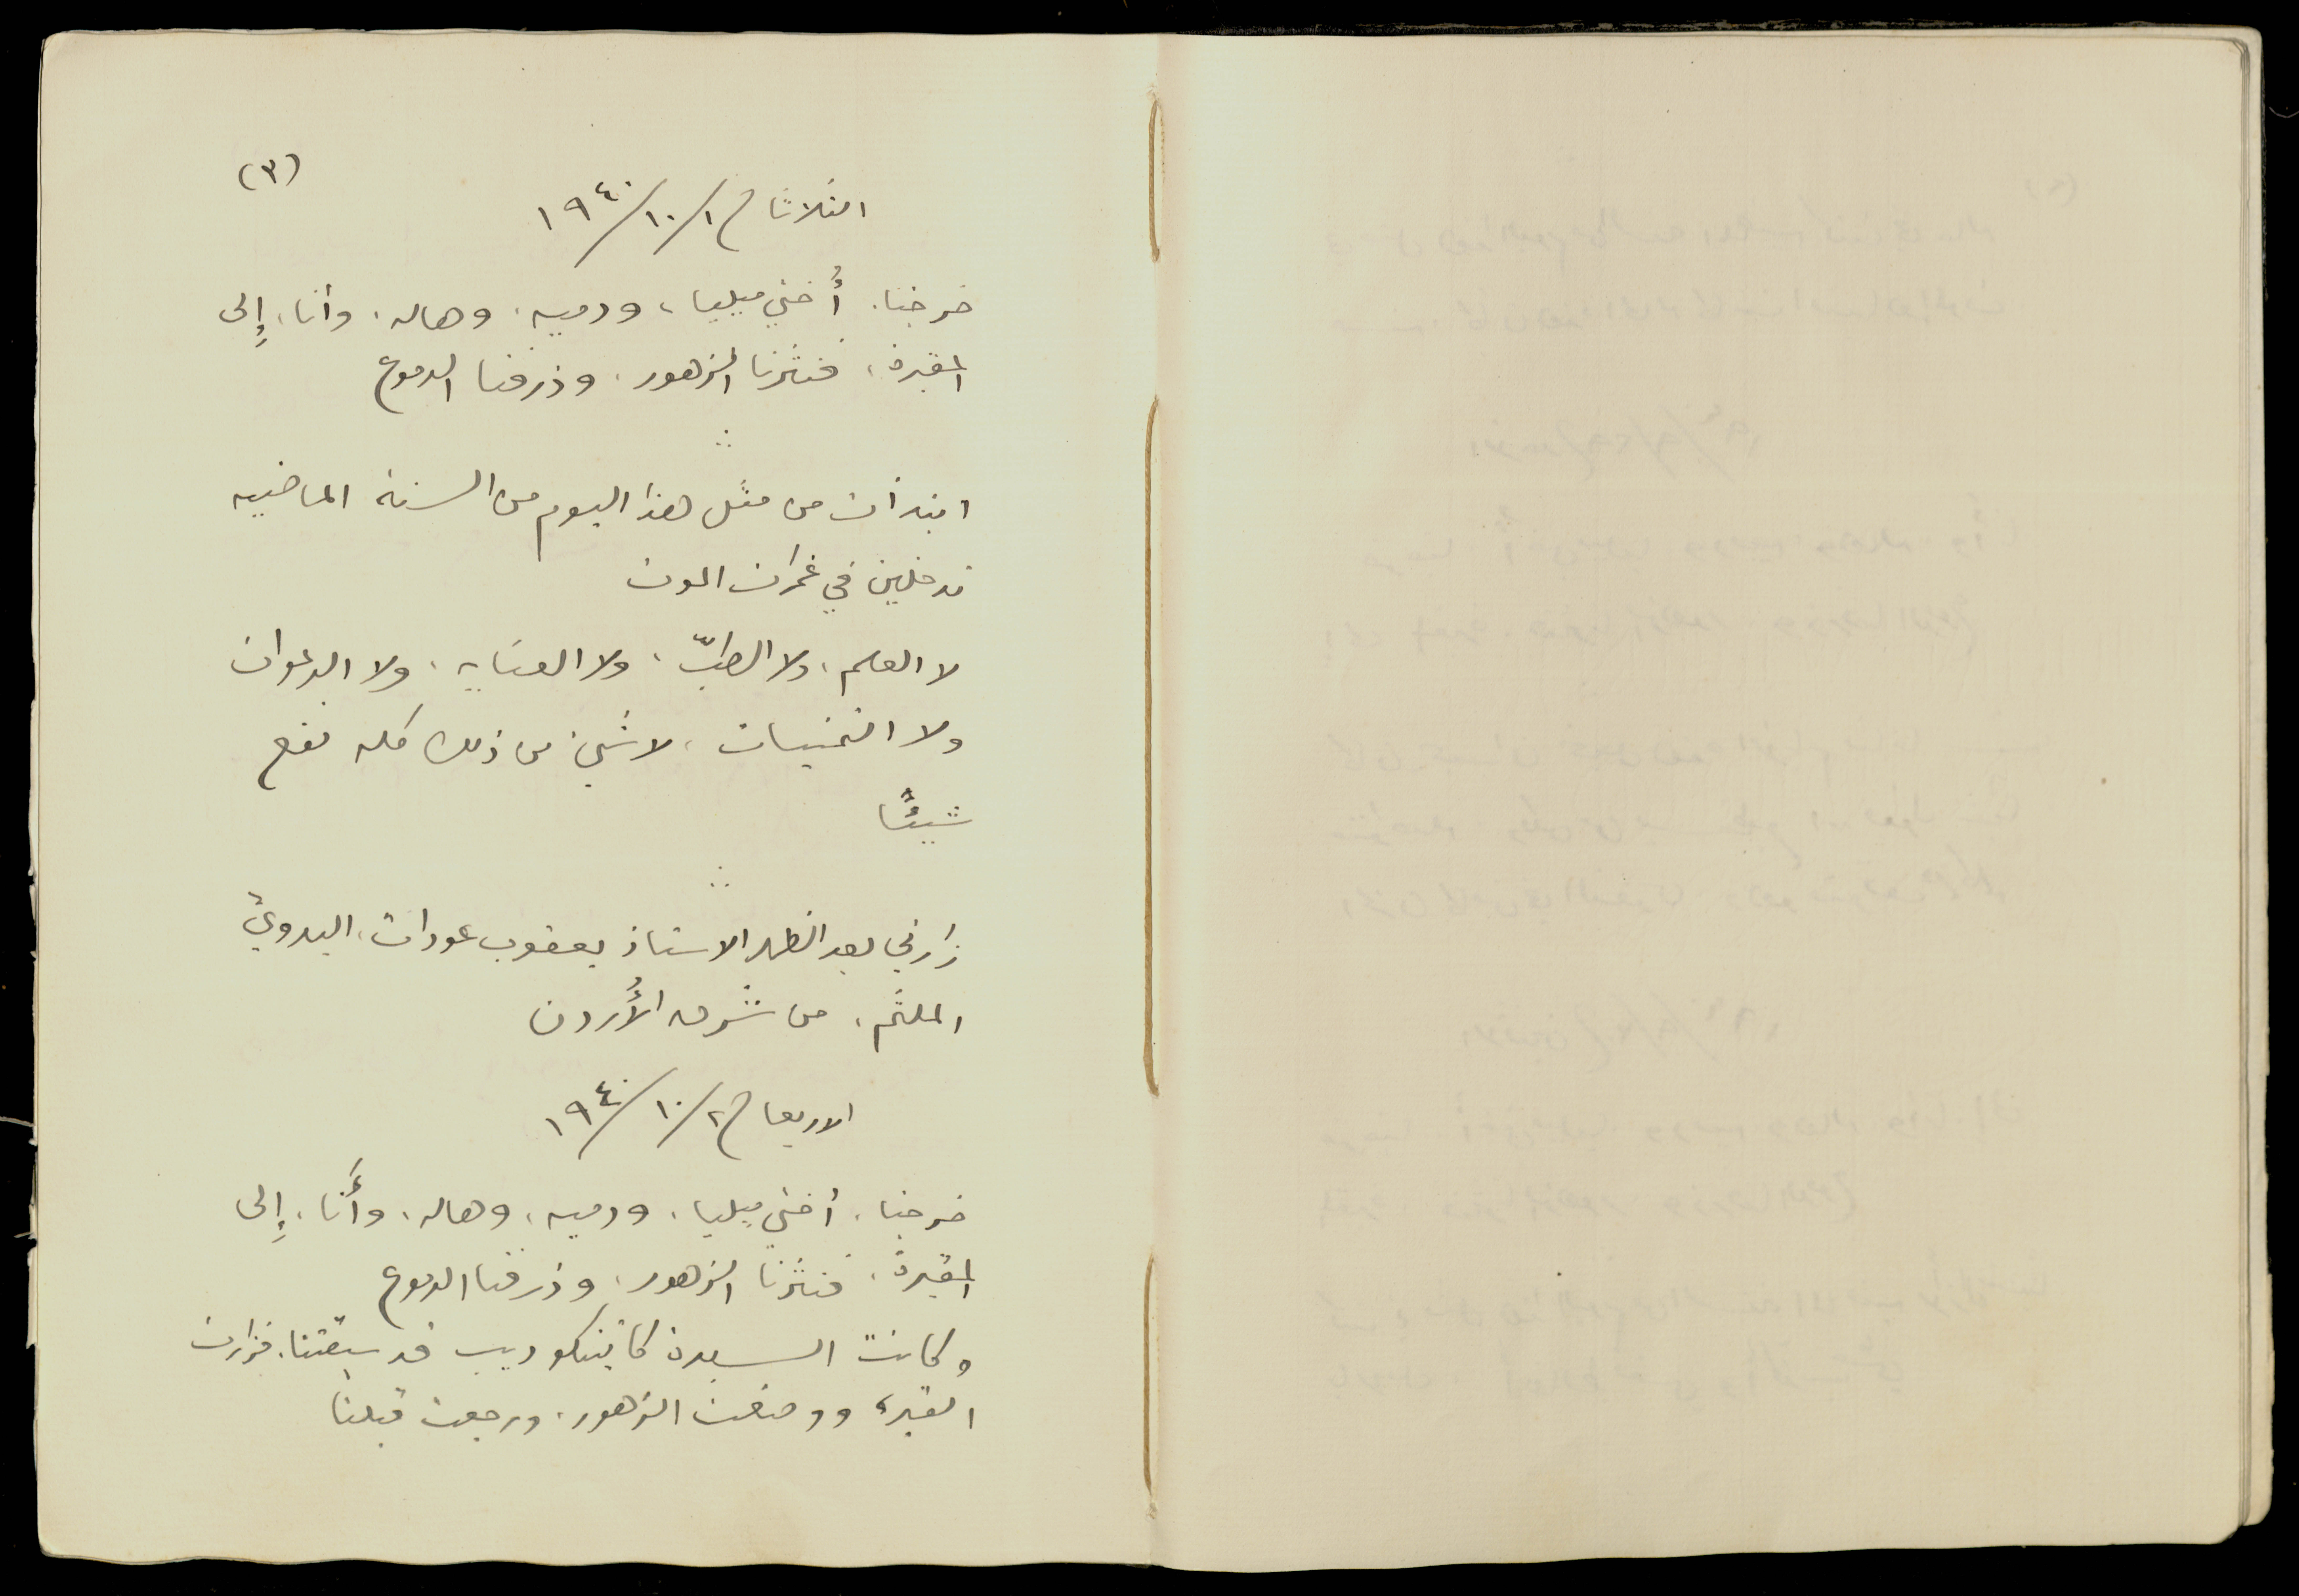 (٣)
الثلاثاء ١/١٠/١٩٤٠
خرجنا، أُختي ميليا، ودميه، وهاله، وأنا، إِلى
المقبرة، فنثرنا الزهور، وذرفنا الدموع
ابتدأت من مثل هذا اليوم من السنة الماضيه
تدخلين في غمرات الموت
لا العلم، ولا الطبّ، ولا العنايه، ولا الدعوات
ولا التمنيات، لا شيء من ذلك كله نفع
شيئًا
زارني بعد الظهر الاستاذ يعقوب عودات، البدويّ
الملثم، من شرق الأُردن
الاربعاء ٢/١٠/١٩٤٠
خرجنا، أختي ميليا، ودميه، وهاله، وأَنا، إِلى
المقبرة، فنثرنا الزهور، وذرفنا الدموع
وكانت السيدة كاتينكو ديب قد سبقتنا، فزارت
القبر، ووضعت الزهور، ورجعت قبلنا